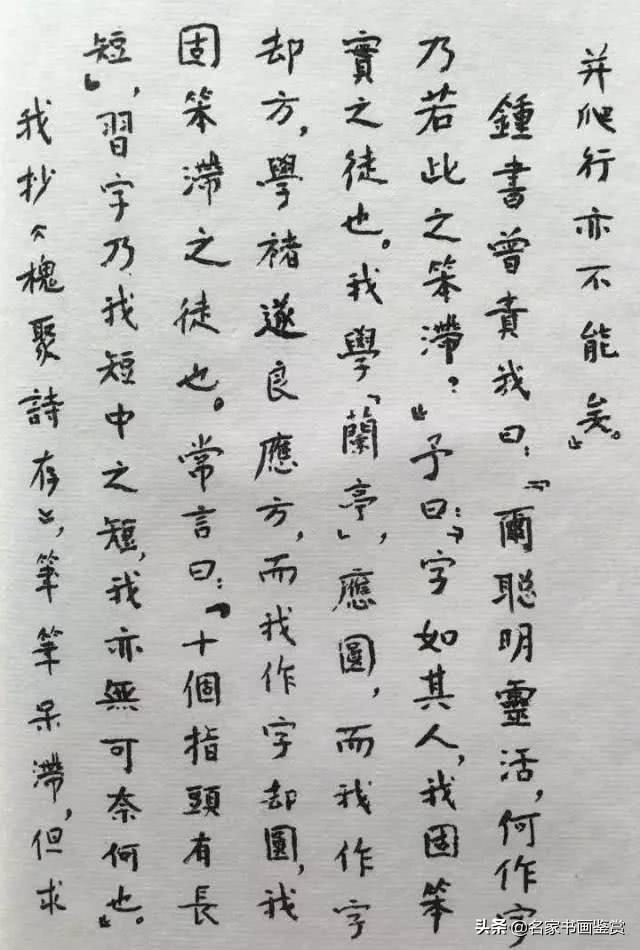 并爬行亦不能矣』。
鍾書曾責我曰：『爾聰明靈活，何作字
乃若此之笨滯？』予曰：『字如其人，我固笨
實之徒也。我學『蘭亭』，應圓，而我作字
却方，學褚遂良應方，而我作字却圓，我
固笨滯之徒也。常言曰：『十個指頭有長
短』，習字乃我短中之短，我亦無可奈何也』。
我抄《槐聚詩存》，筆筆呆滯，但求
头条 @名家书画鉴赏